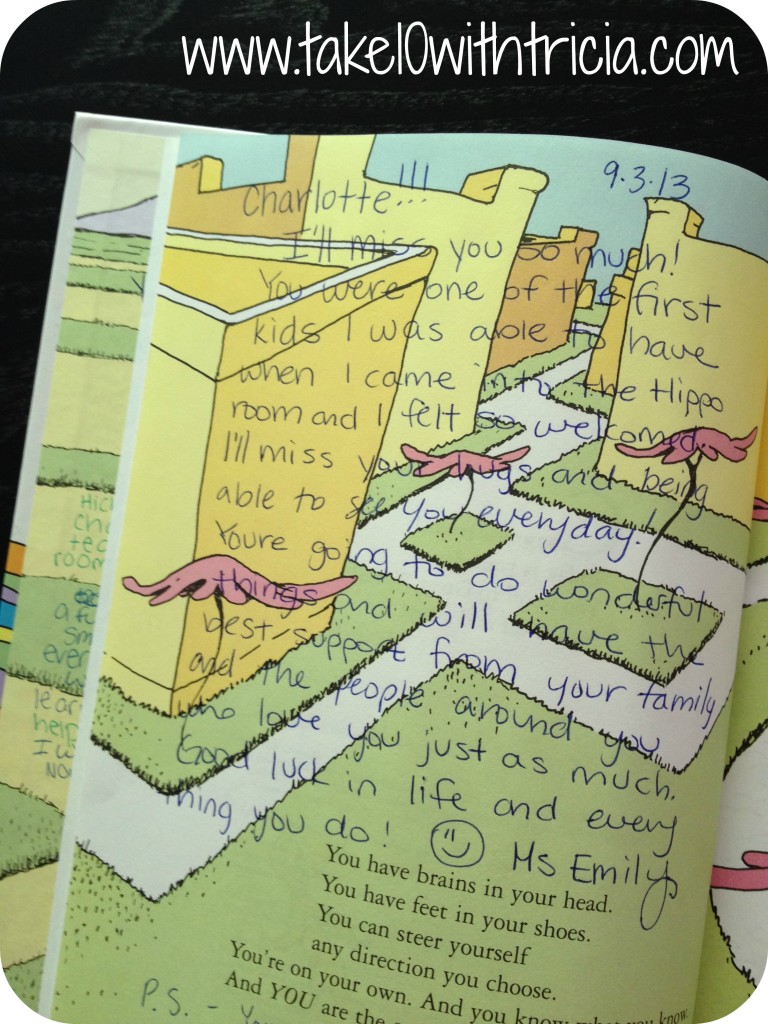 www.take10withtricia.com
9.3.13
Charlotte...!!!
I'll miss you so much!
You were one of the first
kids I was able to have
when I came into the Hippo
room and I felt so welcomed.
I'll miss your hugs and being
able to see you everyday!
Youre going to do wonderful
things and will have the
best support from your family
and the people around you
who love you just as much.
Good luck in life and every
thing you do! Ms Emily
You have brains in your head.
You have feet in your shoes.
You can steer yourself
any direction you choose.
You're on your own. And you know what you know.
And YOU are the
P.S. - You
room
a fu
sm
ever
lear
help
I w